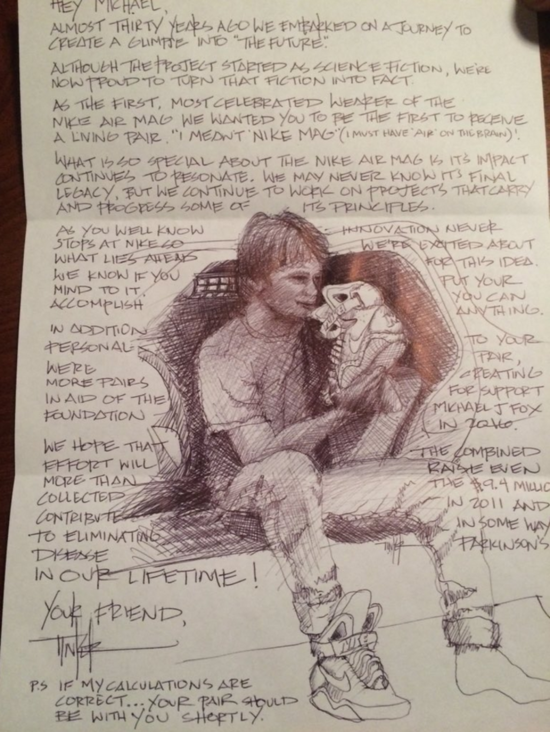 HEY MICHAEL,
ALMOST THIRTY YEARS AGO WE EMBARKED ON A JOURNEY TO
CREATE A GLIMPSE INTO "THE FUTURE".
ALTHOUGH THE PROJECT STARTED AS SCIENCE FICTION, WE'RE
NOW PROUD TO TURN THAT FICTION INTO FACT.
AS THE FIRST, MOST CELEBRATED WEARER OF THE
NIKE AIR MAG WE WANTED YOU TO BE THE FIRST TO RECEIVE
A LIVING PAIR. "I MEANT NIKE MAG" (I MUST HAVE 'AIR' ON THE BRAIN)!
WHAT IS SO SPECIAL ABOUT THE NIKE AIR MAG IS ITS IMPACT
CONTINUES TO RESONATE. WE MAY NEVER KNOW ITS FINAL
LEGACY, BUT WE CONTINUE TO WORK ON PROJECTS THAT CARRY
AND PROGRESS SOME OF ITS PRINCIPLES.
AS YOU WELL KNOW INNOVATION NEVER
STOPS AT NIKE SO WE'RE EXCITED ABOUT
WHAT LIES AHEAD FOR THIS IDEA.
WE KNOW IF YOU PUT YOUR
MIND TO IT YOU CAN
ACCOMPLISH ANYTHING.
IN ADDITION TO YOUR
PERSONAL PAIR,
WE'RE CREATING
MORE PAIRS FOR SUPPORT
IN AID OF THE MICHAEL J FOX
FOUNDATION IN 2016.
WE HOPE THAT THE COMBINED
EFFORT WILL RAISE EVEN
MORE THAN THE $9.4 MILLIO
COLLECTED IN 2011 AND
CONTRIBUTE IN SOME WAY
TO ELIMINATING PARKINSON'S
DISEASE
IN OUR LIFETIME!
YOUR FRIEND,
TINKER
P.S IF MY CALCULATIONS ARE
CORRECT... YOUR PAIR SHOULD
BE WITH YOU SHORTLY.